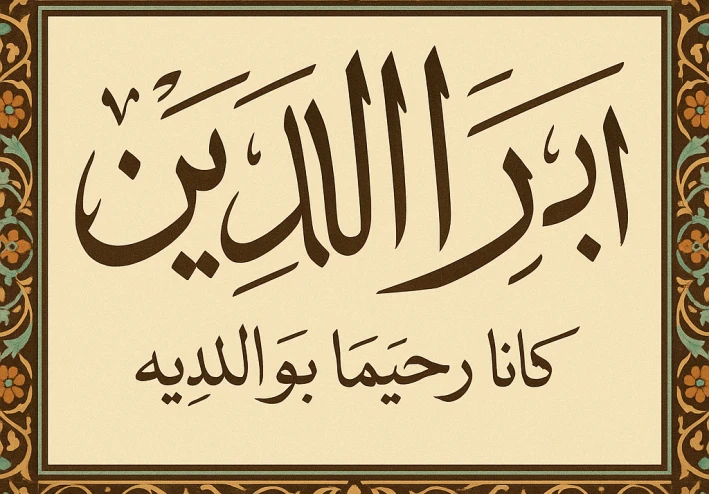 ابرَِاالدِيَنْ
كانا رحيَمَا بوَاللدِيه